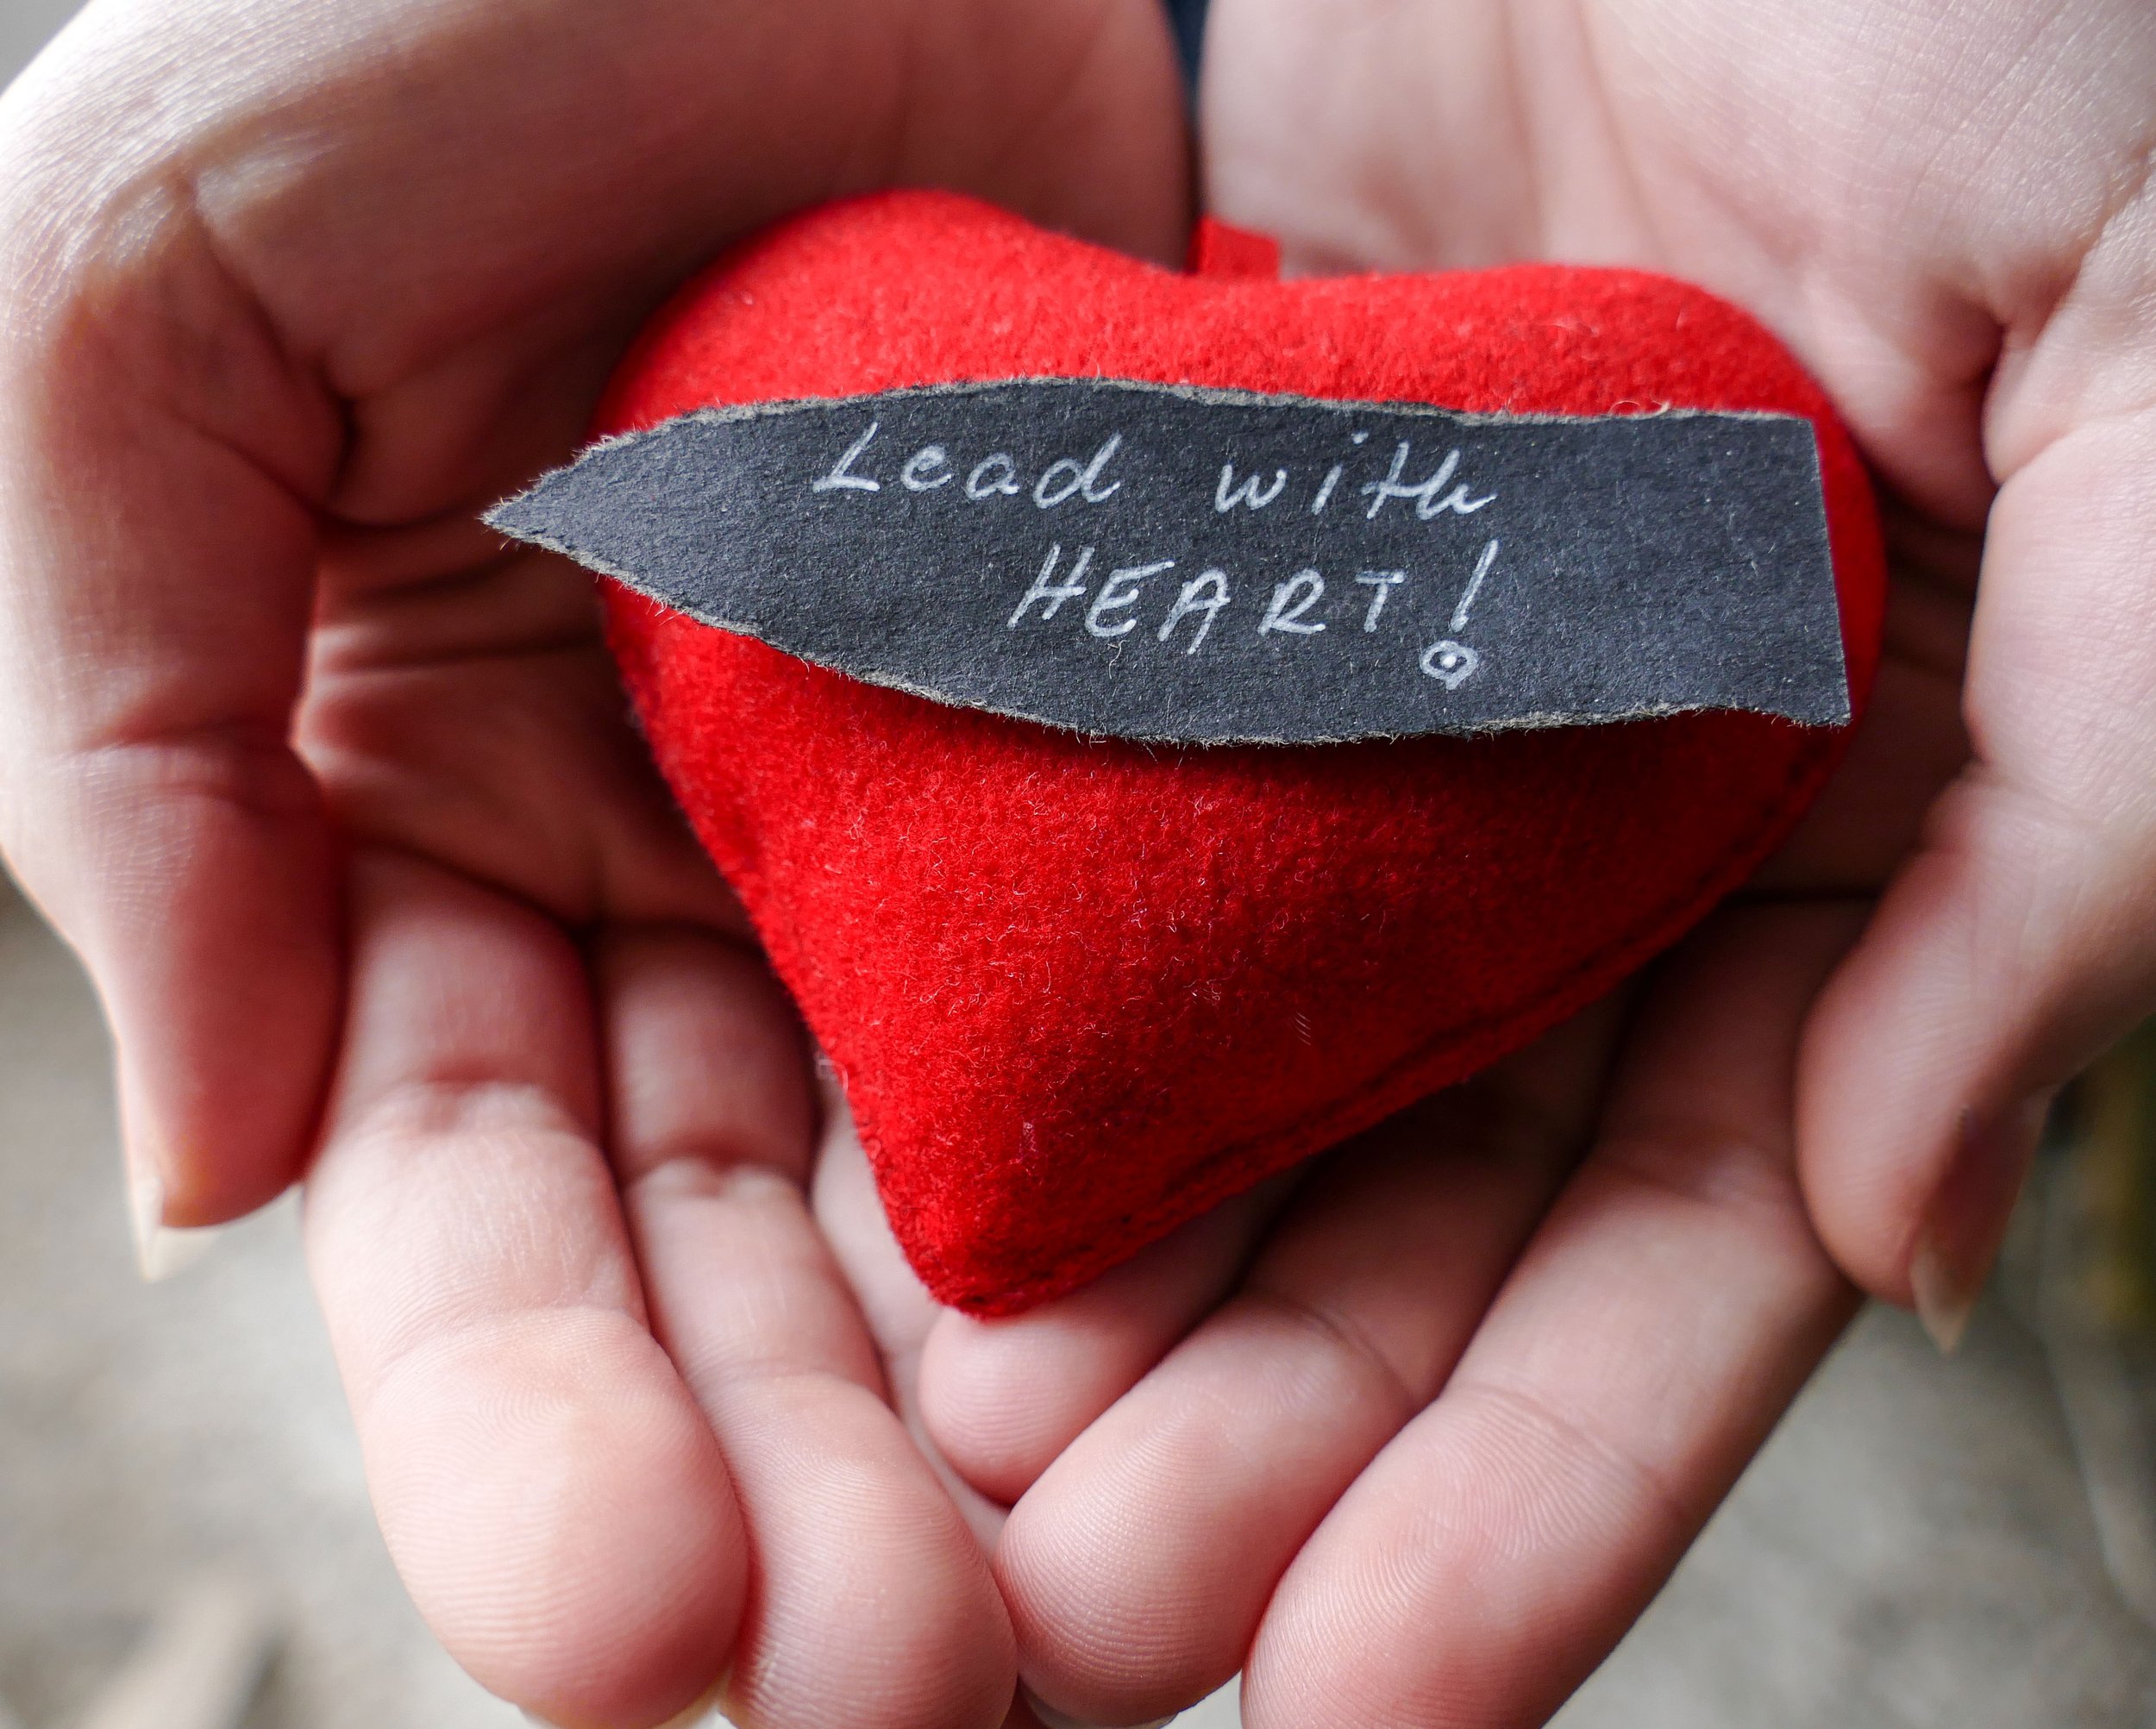 Lead with
HEART!